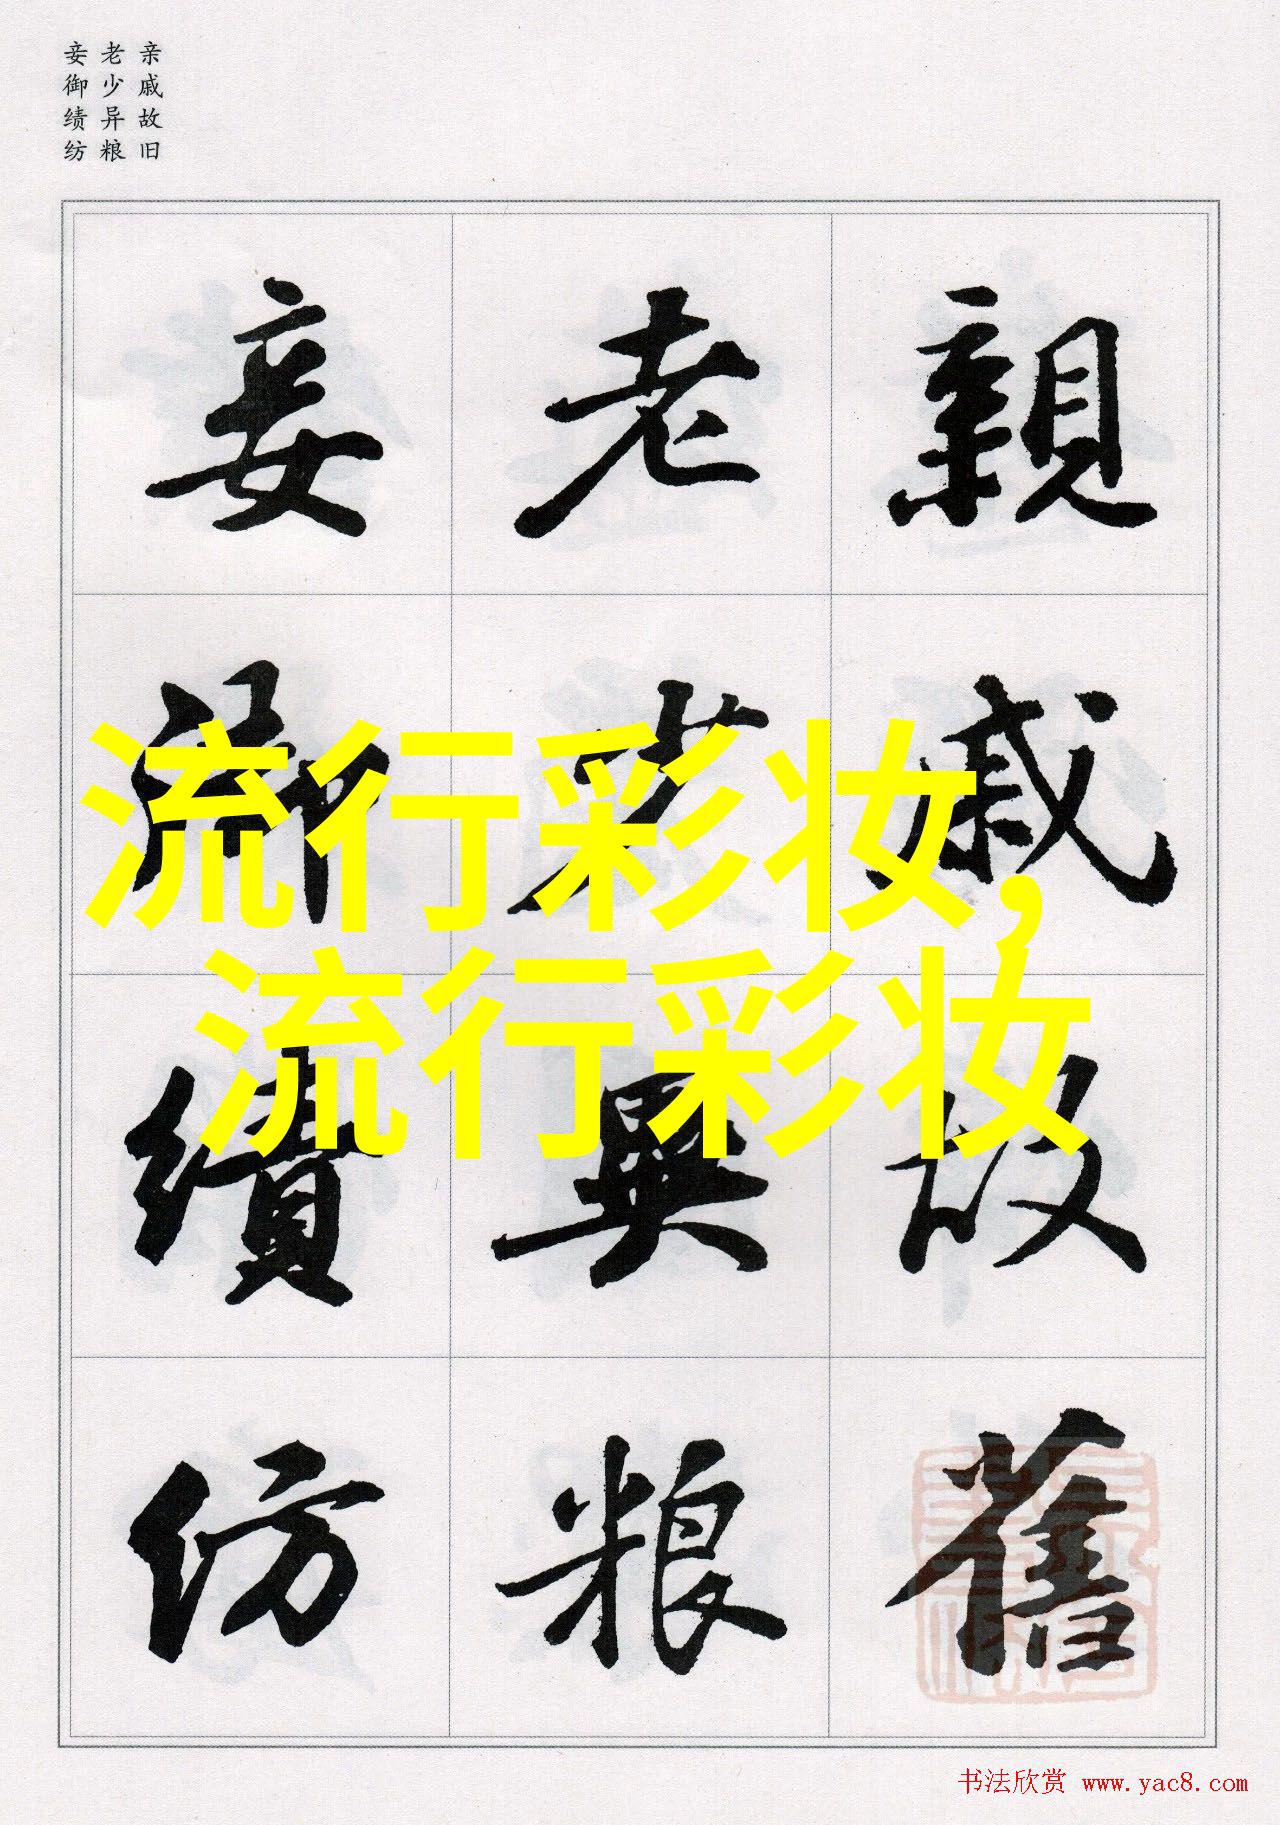 亲戚故旧
老少异粮
妾御绩纺
親戚故舊
老少異粮
妾御績紡
流行彩妆,
流行彩妆
书法欣赏 www.yac8.com